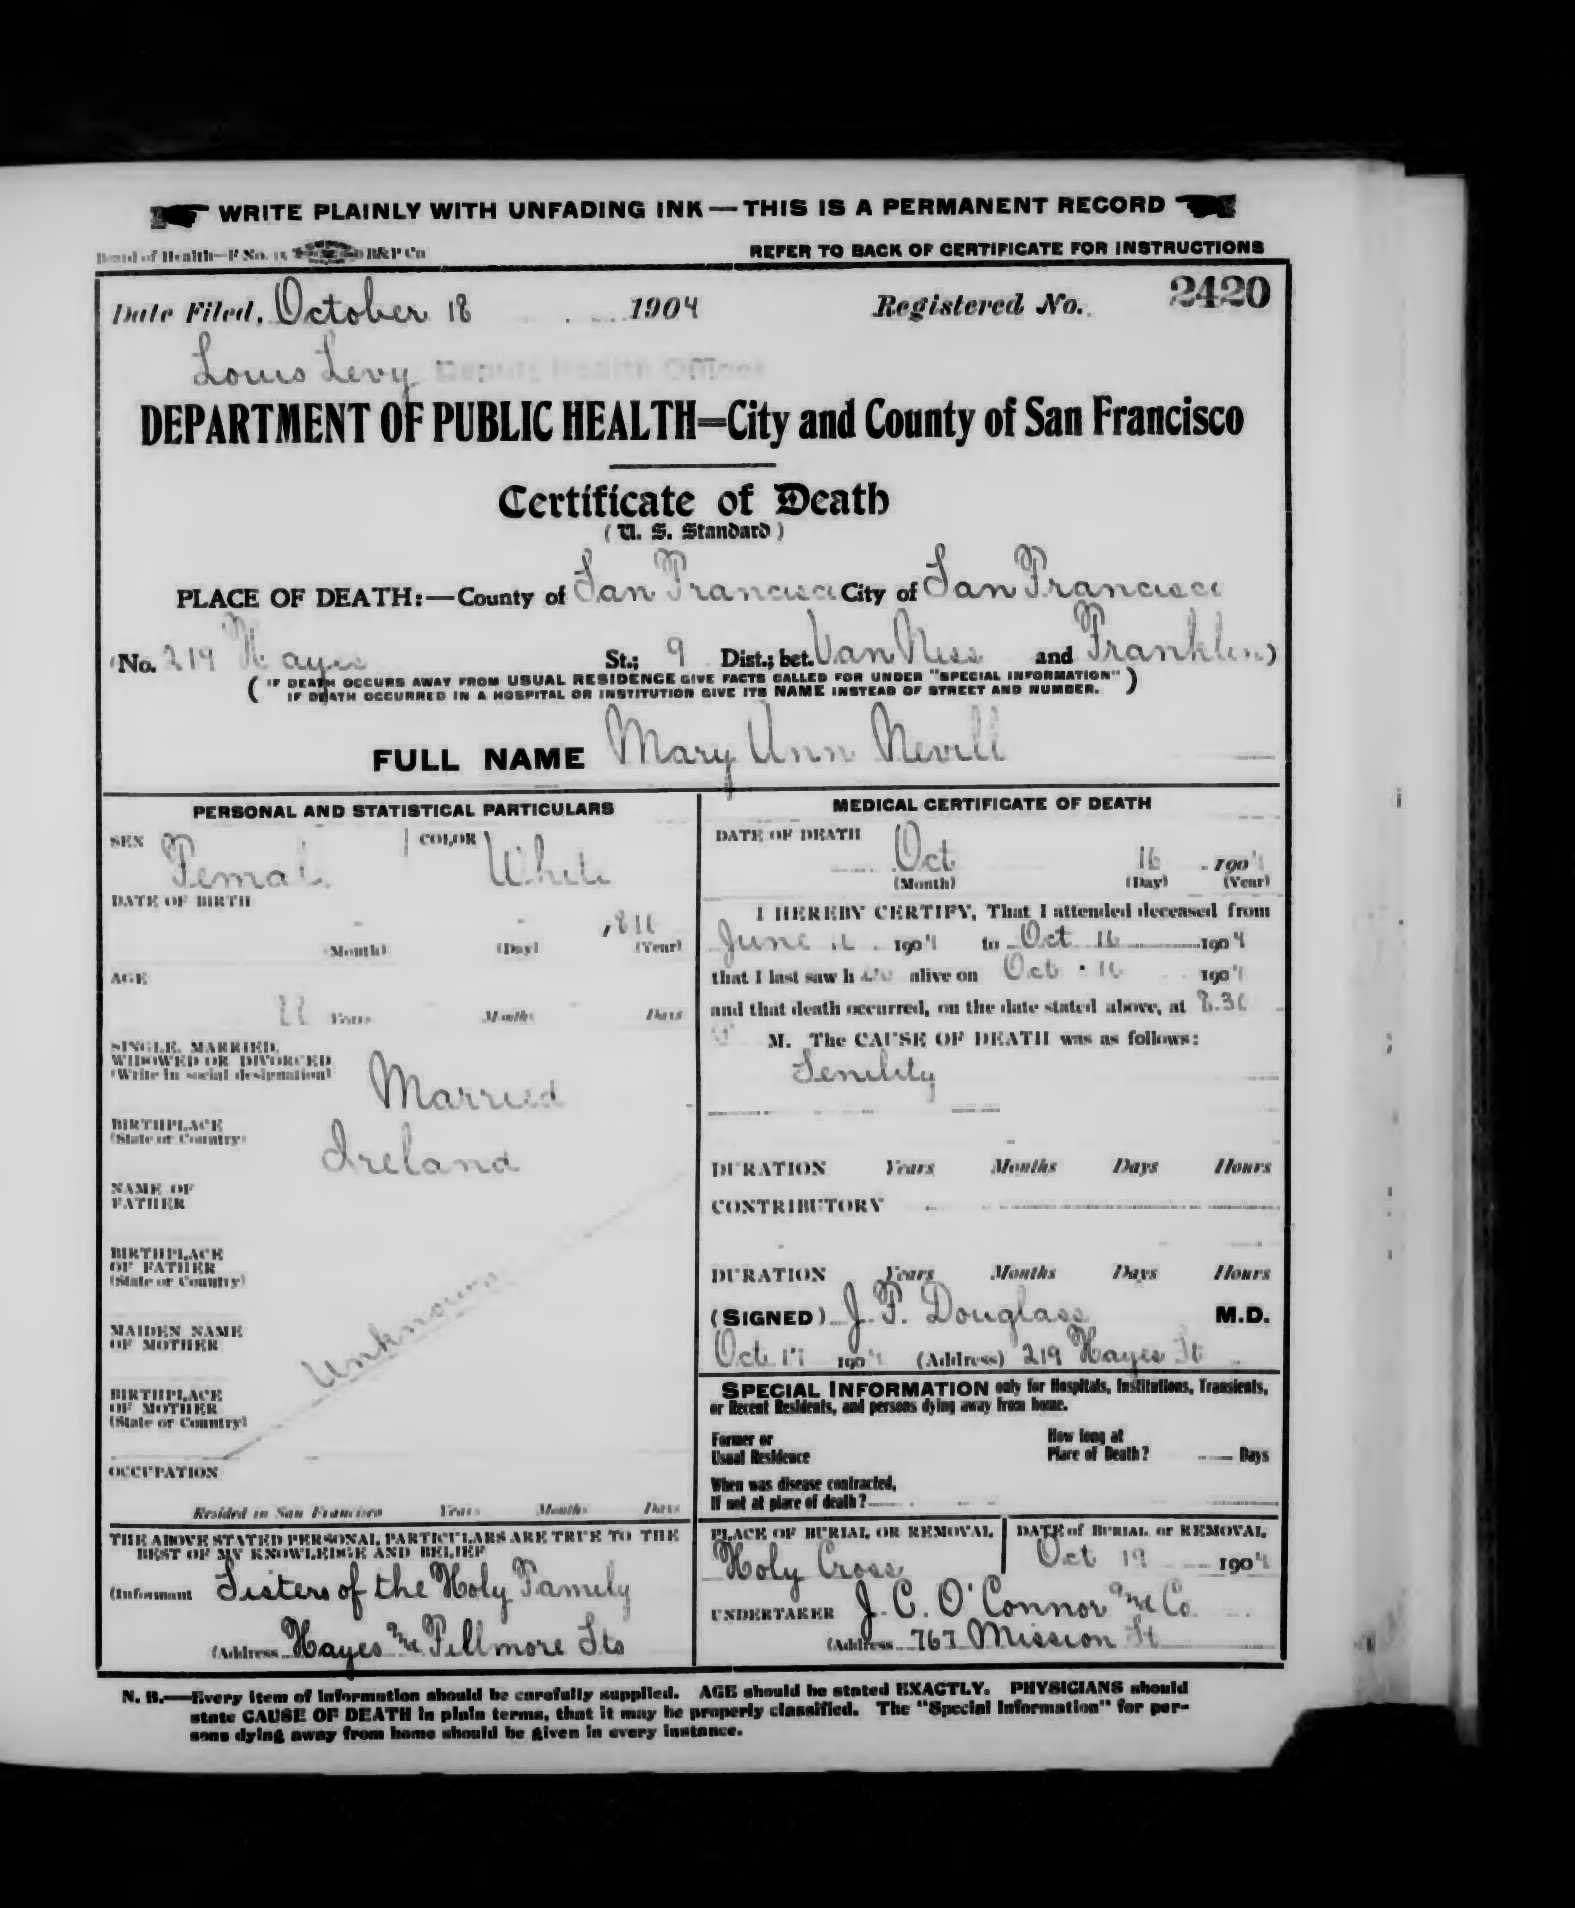 WRITE PLAINLY WITH UNFADING INK—THIS IS A PERMANENT RECORD
Board of Health—F No. 15 B&P Co REFER TO BACK OF CERTIFICATE FOR INSTRUCTIONS
Date Filed, October 18 1904 Registered No. 2420
Louis Levy Deputy Health Officer
DEPARTMENT OF PUBLIC HEALTH—City and County of San Francisco
Certificate of Death
(U. S. Standard)
PLACE OF DEATH:—County of San Francisco City of San Francisco
(No. 219 Hayes St.; 9 Dist.; bet. Van Ness and Franklin)
(IF DEATH OCCURS AWAY FROM USUAL RESIDENCE GIVE FACTS CALLED FOR UNDER "SPECIAL INFORMATION"
IF DEATH OCCURRED IN A HOSPITAL OR INSTITUTION GIVE ITS NAME INSTEAD OF STREET AND NUMBER.)
FULL NAME Mary Ann Nevill
PERSONAL AND STATISTICAL PARTICULARS
SEX Female COLOR White
DATE OF BIRTH
(Month) (Day) (Year)
AGE
Years Months Days
SINGLE, MARRIED,
WIDOWED OR DIVORCED
(Write in social designation) Married
BIRTHPLACE
(State or Country) Ireland
NAME OF
FATHER
BIRTHPLACE
OF FATHER
(State or Country)
Unknown
MAIDEN NAME
OF MOTHER
BIRTHPLACE
OF MOTHER
(State or Country)
OCCUPATION
Resided in San Francisco Years Months Days
THE ABOVE STATED PERSONAL PARTICULARS ARE TRUE TO THE
BEST OF MY KNOWLEDGE AND BELIEF
(Informant Sisters of the Holy Family
(Address Hayes and Fillmore Sts
MEDICAL CERTIFICATE OF DEATH
DATE OF DEATH
Oct 16 1904
(Month) (Day) (Year)
I HEREBY CERTIFY, That I attended deceased from
June 1904 to Oct 16 1904
that I last saw her alive on Oct 16 1904
and that death occurred, on the date stated above, at 8.30
M. The CAUSE OF DEATH was as follows:
Senility
DURATION Years Months Days Hours
CONTRIBUTORY
DURATION Years Months Days Hours
(SIGNED) J. F. Douglass M.D.
Oct 17 1904 (Address) 219 Hayes St
SPECIAL INFORMATION only for Hospitals, Institutions, Transients,
or Recent Residents, and persons dying away from home.
Former or
Usual Residence
How long at
Place of Death? Days
When was disease contracted,
If not at place of death?
PLACE OF BURIAL OR REMOVAL DATE of BURIAL or REMOVAL
Holy Cross Oct 19 1904
UNDERTAKER J. C. O'Connor and Co
(Address 767 Mission St
N. B.—Every item of information should be carefully supplied. AGE should be stated EXACTLY. PHYSICIANS should
state CAUSE OF DEATH in plain terms, that it may be properly classified. The "Special Information" for per-
sons dying away from home should be given in every instance.